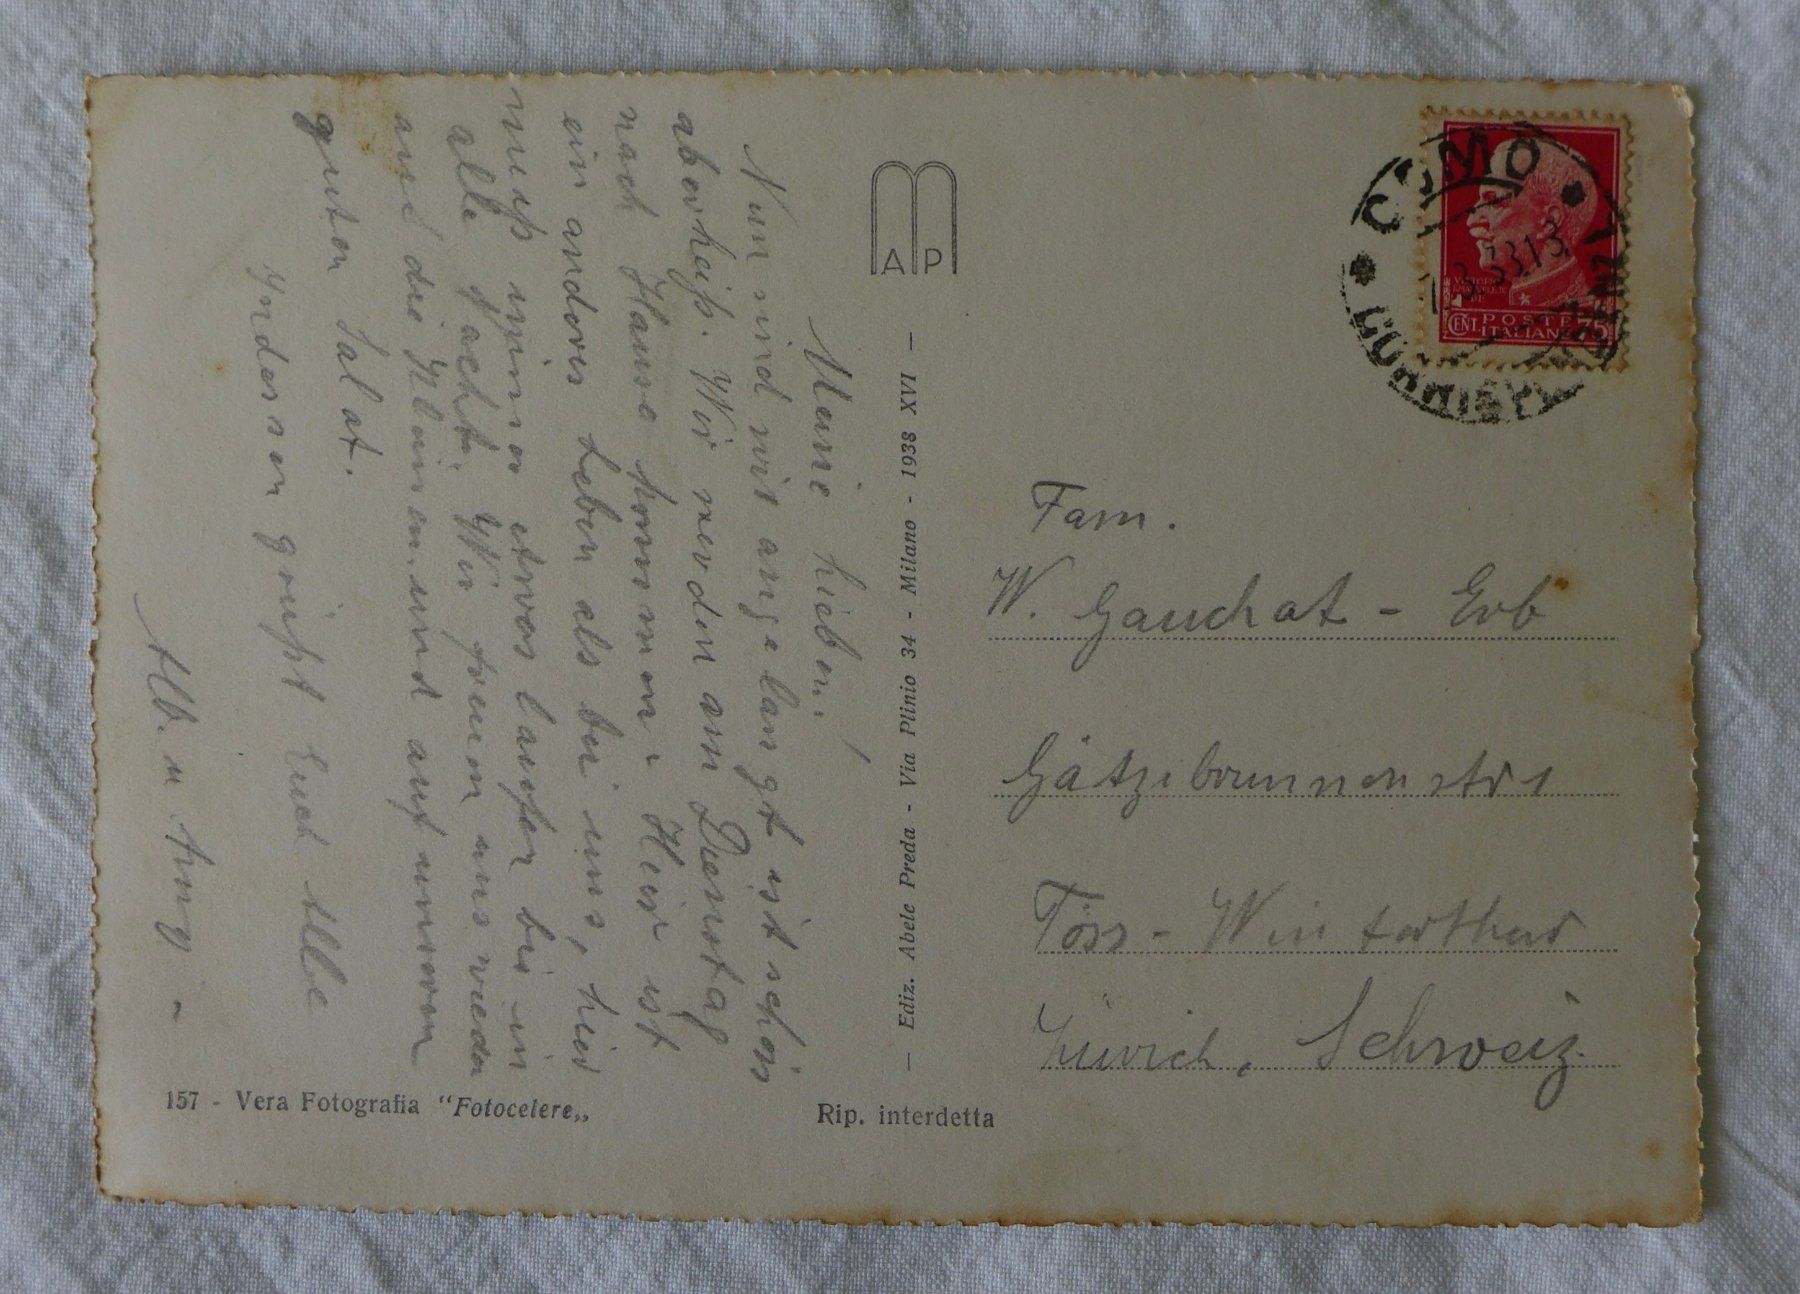 Meine lieben!
Nun sind wir angelangt ist schön
aber heiss. Wir werden am Dienstag
nach Hause kommen. Hier ist
ein anderes Leben als bei uns, hier
muss immer etwas laufen bis in
alle Nacht. Wir freuen uns wieder
auf die Kleinen und auf unseren
guten Salat.
Indessen grüsst Euch Alle
Alb. u.
AP
— Ediz. Abele Preda - Via Plinio 34 - Milano - 1938 XVI —
COMO
VITTORIO
CENT. POSTE 75
ITALIANE
Fam.
W. Gauchat - Erb
Gätzibrunnenstr 1
Töss - Winterthur
Zürich, Schweiz.
157 - Vera Fotografia “Fotocelere„
Rip. interdetta